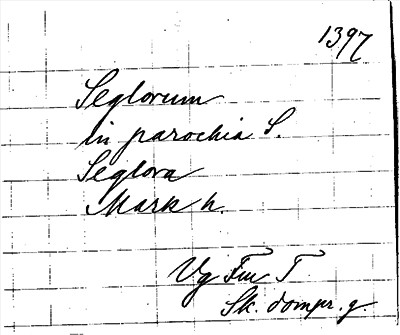 1397
Seglorum
in parochia S.
Seglora
Mark h.
Vg Fru T
Sk. dompr. g.